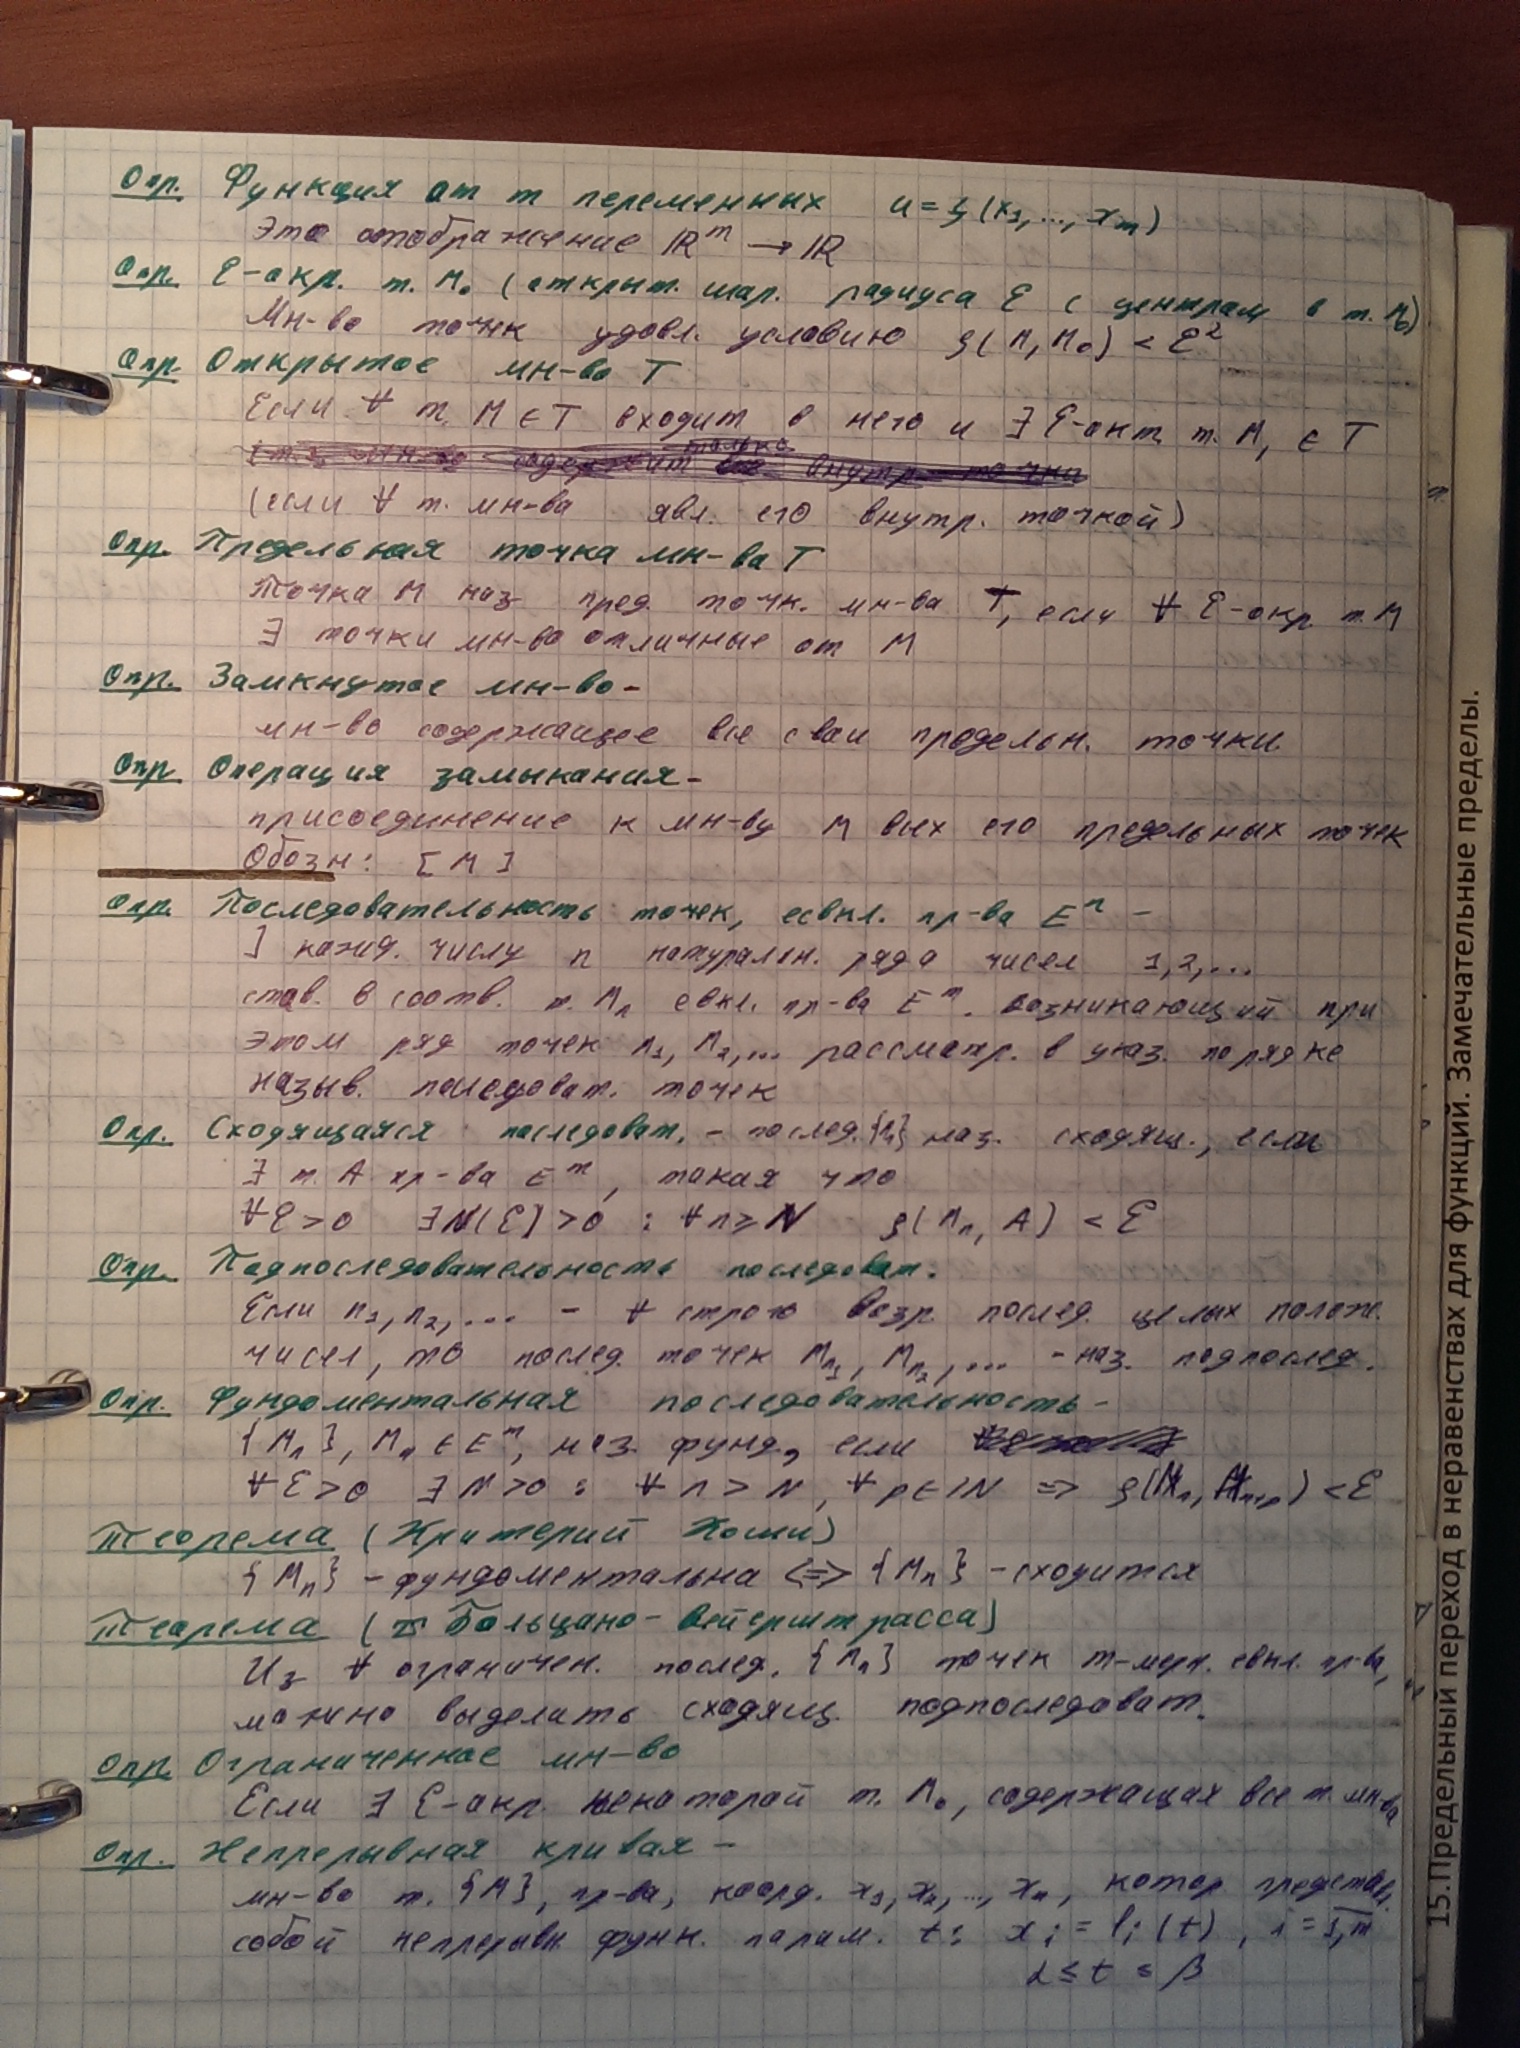 Опр. Функция от m переменных u = f(x₁, ..., xₘ)
Это отображение ℝᵐ → ℝ
Опр. ε-окр. т. M₀ (открыт. шар. радиуса ε с центром в т. M₀)
Мн-во точек удовл. условию ρ(M, M₀) < ε²
Опр Открытое мн-во T
Если ∀ т. M ∈ T входит в него и ∃ ε-окт. т. M, ∈ T
(если ∀ т. мн-ва явл. его внутр. точкой)
Опр. Предельная точка мн-ва T
Точка M наз пред. точк. мн-ва T, если ∀ ε-окр. т. M
∃ точки мн-во отличные от M
Опр. Замкнутое мн-во -
мн-во содержащее все свои предельн. точки.
Опр Операция замыкания -
присоединение к мн-ву M всех его предельных точек
Обозн: [M]
Опр. Последовательность точек, есвкл. пр-ва Eⁿ -
] кажд. числу n натуральн. ряда чисел 1, 2, ...
став. в соотв. т. Mₙ евкл. пр-ва Eᵐ. возникающий при
этом ряд точек M₁, M₂, ... рассматр. в указ. порядке
назыв. последоват. точек
Опр. Сходящаяся последоват. - послед. {Mₙ} наз. сходящ., если
∃ т. A пр-ва Eᵐ, такая что
∀ε > 0 ∃N(ε) > 0 : ∀n ≥ N ρ(Mₙ, A) < ε
Опр. Подпоследовательность последоват.
Если n₁, n₂, ... - ∀ строго возр. послед. целых полож.
чисел, то послед. точек Mₙ₁, Mₙ₂, ... - наз. подпослед.
Опр. Фундоментальная последовательность -
{Mₙ}, Mₙ ∈ Eᵐ, наз. фунд, если
∀ε > 0 ∃N > 0 : ∀ n > N, ∀ p ∈ ℕ => ρ(Mₙ, Mₙ₊ₚ) < ε
Теорема (Критерий Коши)
{Mₙ} - фундоментальна <=> {Mₙ} - сходится
Теорема (Больцано-Вейерштрасса)
Из ∀ ограничен. послед. {Mₙ} точек m-мерн. евкл. пр-ва,
можно выделить сходящ. подпоследоват.
Опр Ограниченное мн-во
Если ∃ ε-окр. некоторой т. M₀, содержащах все т. мн-ва
Опр. Непрерывная кривая -
мн-во т. {M}, пр-ва, коорд. x₁, x₂, ..., xₙ, котор. представл.
собой непрерывн. функ. парам. t: xᵢ = lᵢ(t), i = 1,m
α ≤ t ≤ β
15. Предельный переход в неравенствах для функций. Замечательные пределы.